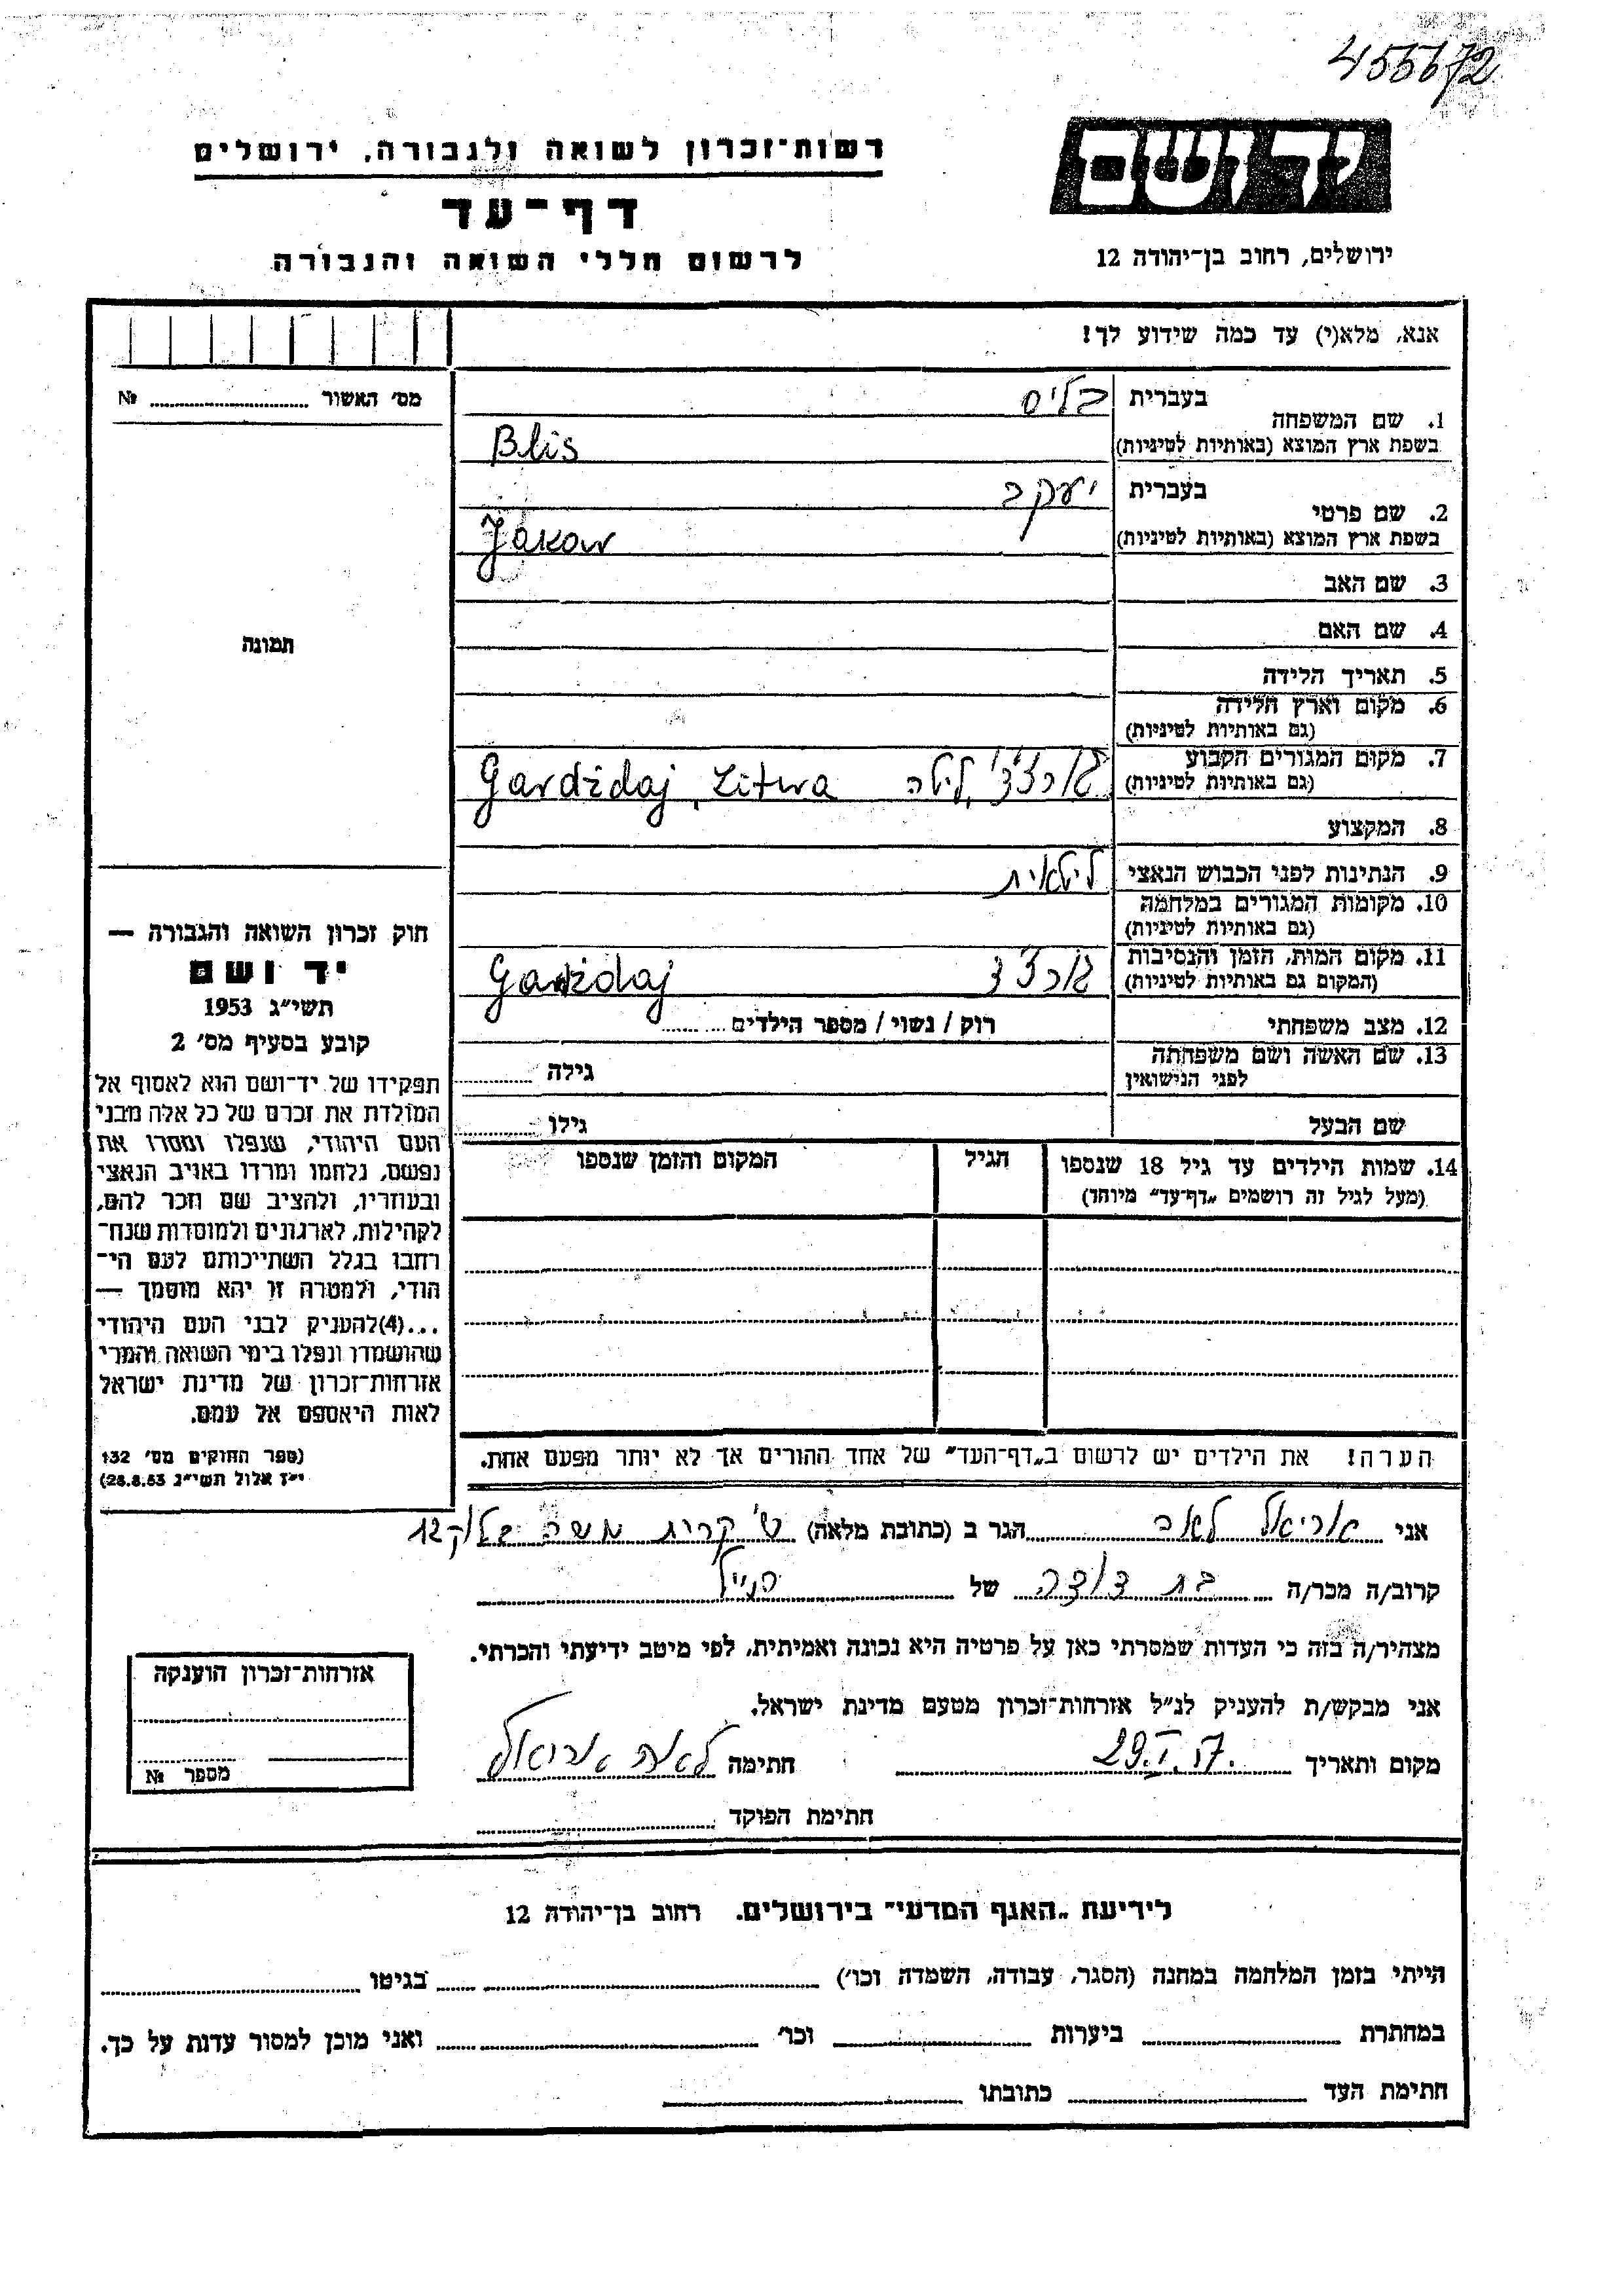 455672
יד ושם
רשות־זכרון לשואה ולגבורה, ירושלים
דף־עד
לרשום חללי השואה והגבורה
ירושלים, רחוב בן־יהודה 12
אנא, מלא(י) עד כמה שידוע לך!
מס׳ האשור № 
1. שם המשפחה
בעברית בליס
בשפת ארץ המוצא (באותיות לטיניות) Blis
2. שם פרטי
בעברית יעקב
בשפת ארץ המוצא (באותיות לטיניות) Jakow
3. שם האב
4. שם האם
תמונה
5. תאריך הלידה
6. מקום וארץ הלידה
(גם באותיות לטיניות)
7. מקום המגורים הקבוע
(גם באותיות לטיניות) ליטא Gardżdaj, Litwa
8. המקצוע
9. הנתינות לפני הכבוש הנאצי ליטאית
10. מקומות המגורים במלחמה
(גם באותיות לטיניות)
11. מקום המות, הזמן והנסיבות
(המקום גם באותיות לטיניות) Garżdaj
12. מצב משפחתי רוק / נשוי / מספר הילדים
13. שם האשה ושם משפחתה
לפני הנישואין גילה
שם הבעל גילו
14. שמות הילדים עד גיל 18 שנספו הגיל המקום והזמן שנספו
(מעל לגיל זה רושמים „דף־עד״ מיוחד)
הערה! את הילדים יש לרשום ב„דף־העד״ של אחד ההורים אך לא יותר מפעם אחת.
חוק זכרון השואה והגבורה —
יד ושם
תשי״ג 1953
קובע בסעיף מס׳ 2
תפקידו של יד־ושם הוא לאסוף אל
המולדת את זכרם של כל אלה מבני
העם היהודי, שנפלו ומסרו את
נפשם, נלחמו ומרדו באויב הנאצי
ובעוזריו, ולהציב שם וזכר להם,
לקהילות, לארגונים ולמוסדות שנח־
רחבו בגלל השתייכותם לעם הי־
הודי, ולמטרה זו יהא מוסמך —
...(4)להעניק לבני העם היהודי
שהושמדו ונפלו בימי השואה והמרי
אזרחות־זכרון של מדינת ישראל
לאות היאספם אל עמם.
(ספר החוקים מס׳ 132
י״ז אלול תשי״ג 28.8.53)
אני אריאל לאה הגר ב (כתובת מלאה) ש׳ קרית משה בלוק 12
קרוב/ה מכר/ה בת דודה של הנ״ל
מצהיר/ה בזה כי העדות שמסרתי כאן על פרטיה היא נכונה ואמיתית, לפי מיטב ידיעתי והכרתי.
אני מבקש/ת להעניק לנ״ל אזרחות־זכרון מטעם מדינת ישראל.
מקום ותאריך 29.I.57. חתימה לאה אריאל
חתימת הפוקד
אזרחות־זכרון הוענקה
מספר №
לידיעת „האגף המדעי״ בירושלים. רחוב בן־יהודה 12
הייתי בזמן המלחמה במחנה (הסגר, עבודה, השמדה וכו׳) בגיטו
במחתרת ביערות וכו׳ ואני מוכן למסור עדות על כך.
חתימת העד כתובתו